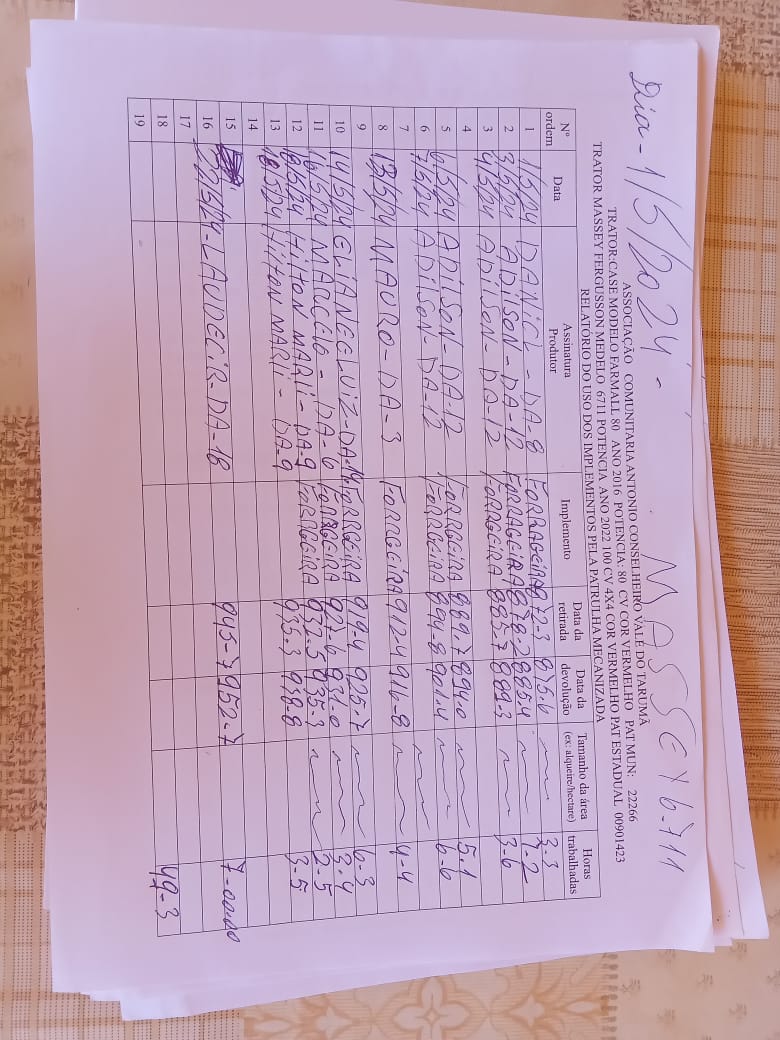 Dia - 1/5/2024 - MASSEY 6-711
ASSOCIAÇÃO COMUNITARIA ANTONIO CONSELHEIRO VALE DO TARUMÃ
TRATOR:CASE MODELO FARMALL 80 ANO 2016 POTENCIA: 80 CV COR VERMELHO PAT MUN: 22266
TRATOR MASSEY FERGUSSON MEDELO 6711 POTENCIA ANO 2022 100 CV 4X4 COR VERMELHO PAT ESTADUAL 00901423
RELATÓRIO DO USO DOS IMPLEMENTOS PELA PATRULHA MECANIZADA
Nº ordem Data Assinatura Produtor Implemento Data da retirada Data da devolução Tamanho da área (ex: alqueire/hectare) Horas trabalhadas
1 1/5/24 DANIEL - DA-8 FORRAGEIRA 872-3 875-6 3-3
2 3/5/24 ADILSON - DA-12 FORRAGEIRA 878-2 885-4 7-2
3 4/5/24 ADILSON - DA-12 FORRAGEIRA 885-7 889-3 3-6
4
5 6/5/24 ADILSON - DA-12 FORRGEIRA 889-7 894-0 5-1
6 7/5/24 ADILSON - DA-12 FORRGEIRA 894-8 901-4 6-6
7
8 13/5/24 MAURO - DA-3 FORRGEIRA 912-4 916-8 4-4
9
10 14/5/24 ELIANE E LUIZ-DA-14 FORRGEIRA 919-4 925-7 6-3
11 16/5/24 MARCELO - DA-6 FORRGEIRA 927-6 931-0 3-4
12 18/5/24 Hilton MARLI - DA-9 FORRAGEIRA 932-5 935-3 2-5
13 18/5/24 Hilton MARLI - DA-9 935-3 938-8 3-5
14
15
16 22/5/24-LAUDECIR-DA-18 945-7 952-7 7-00:00
17
18 49-3
19